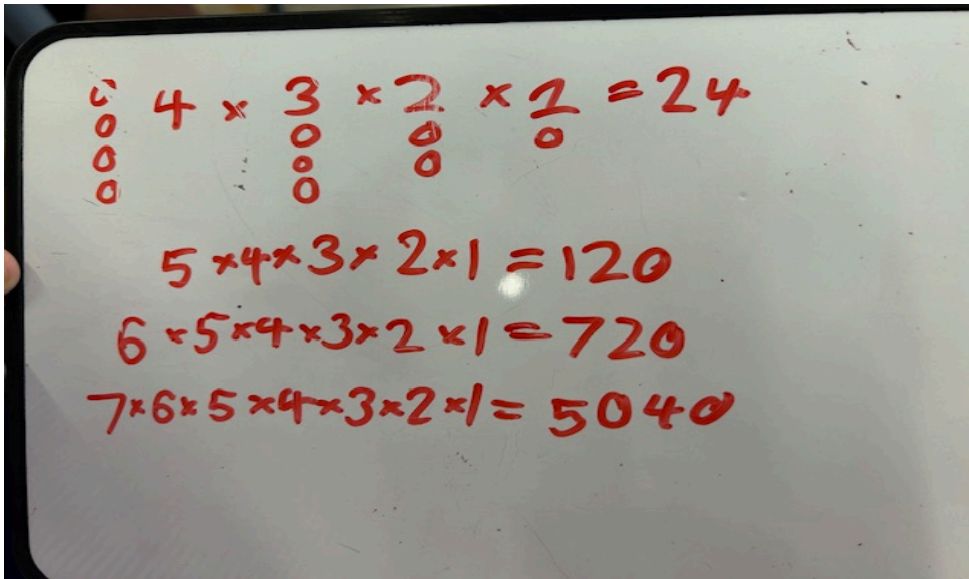 4 × 3 × 2 × 1 = 24
0 0 0 0
0 0 0
0 0
5 × 4 × 3 × 2 × 1 = 120
6 × 5 × 4 × 3 × 2 × 1 = 720
7 × 6 × 5 × 4 × 3 × 2 × 1 = 5040